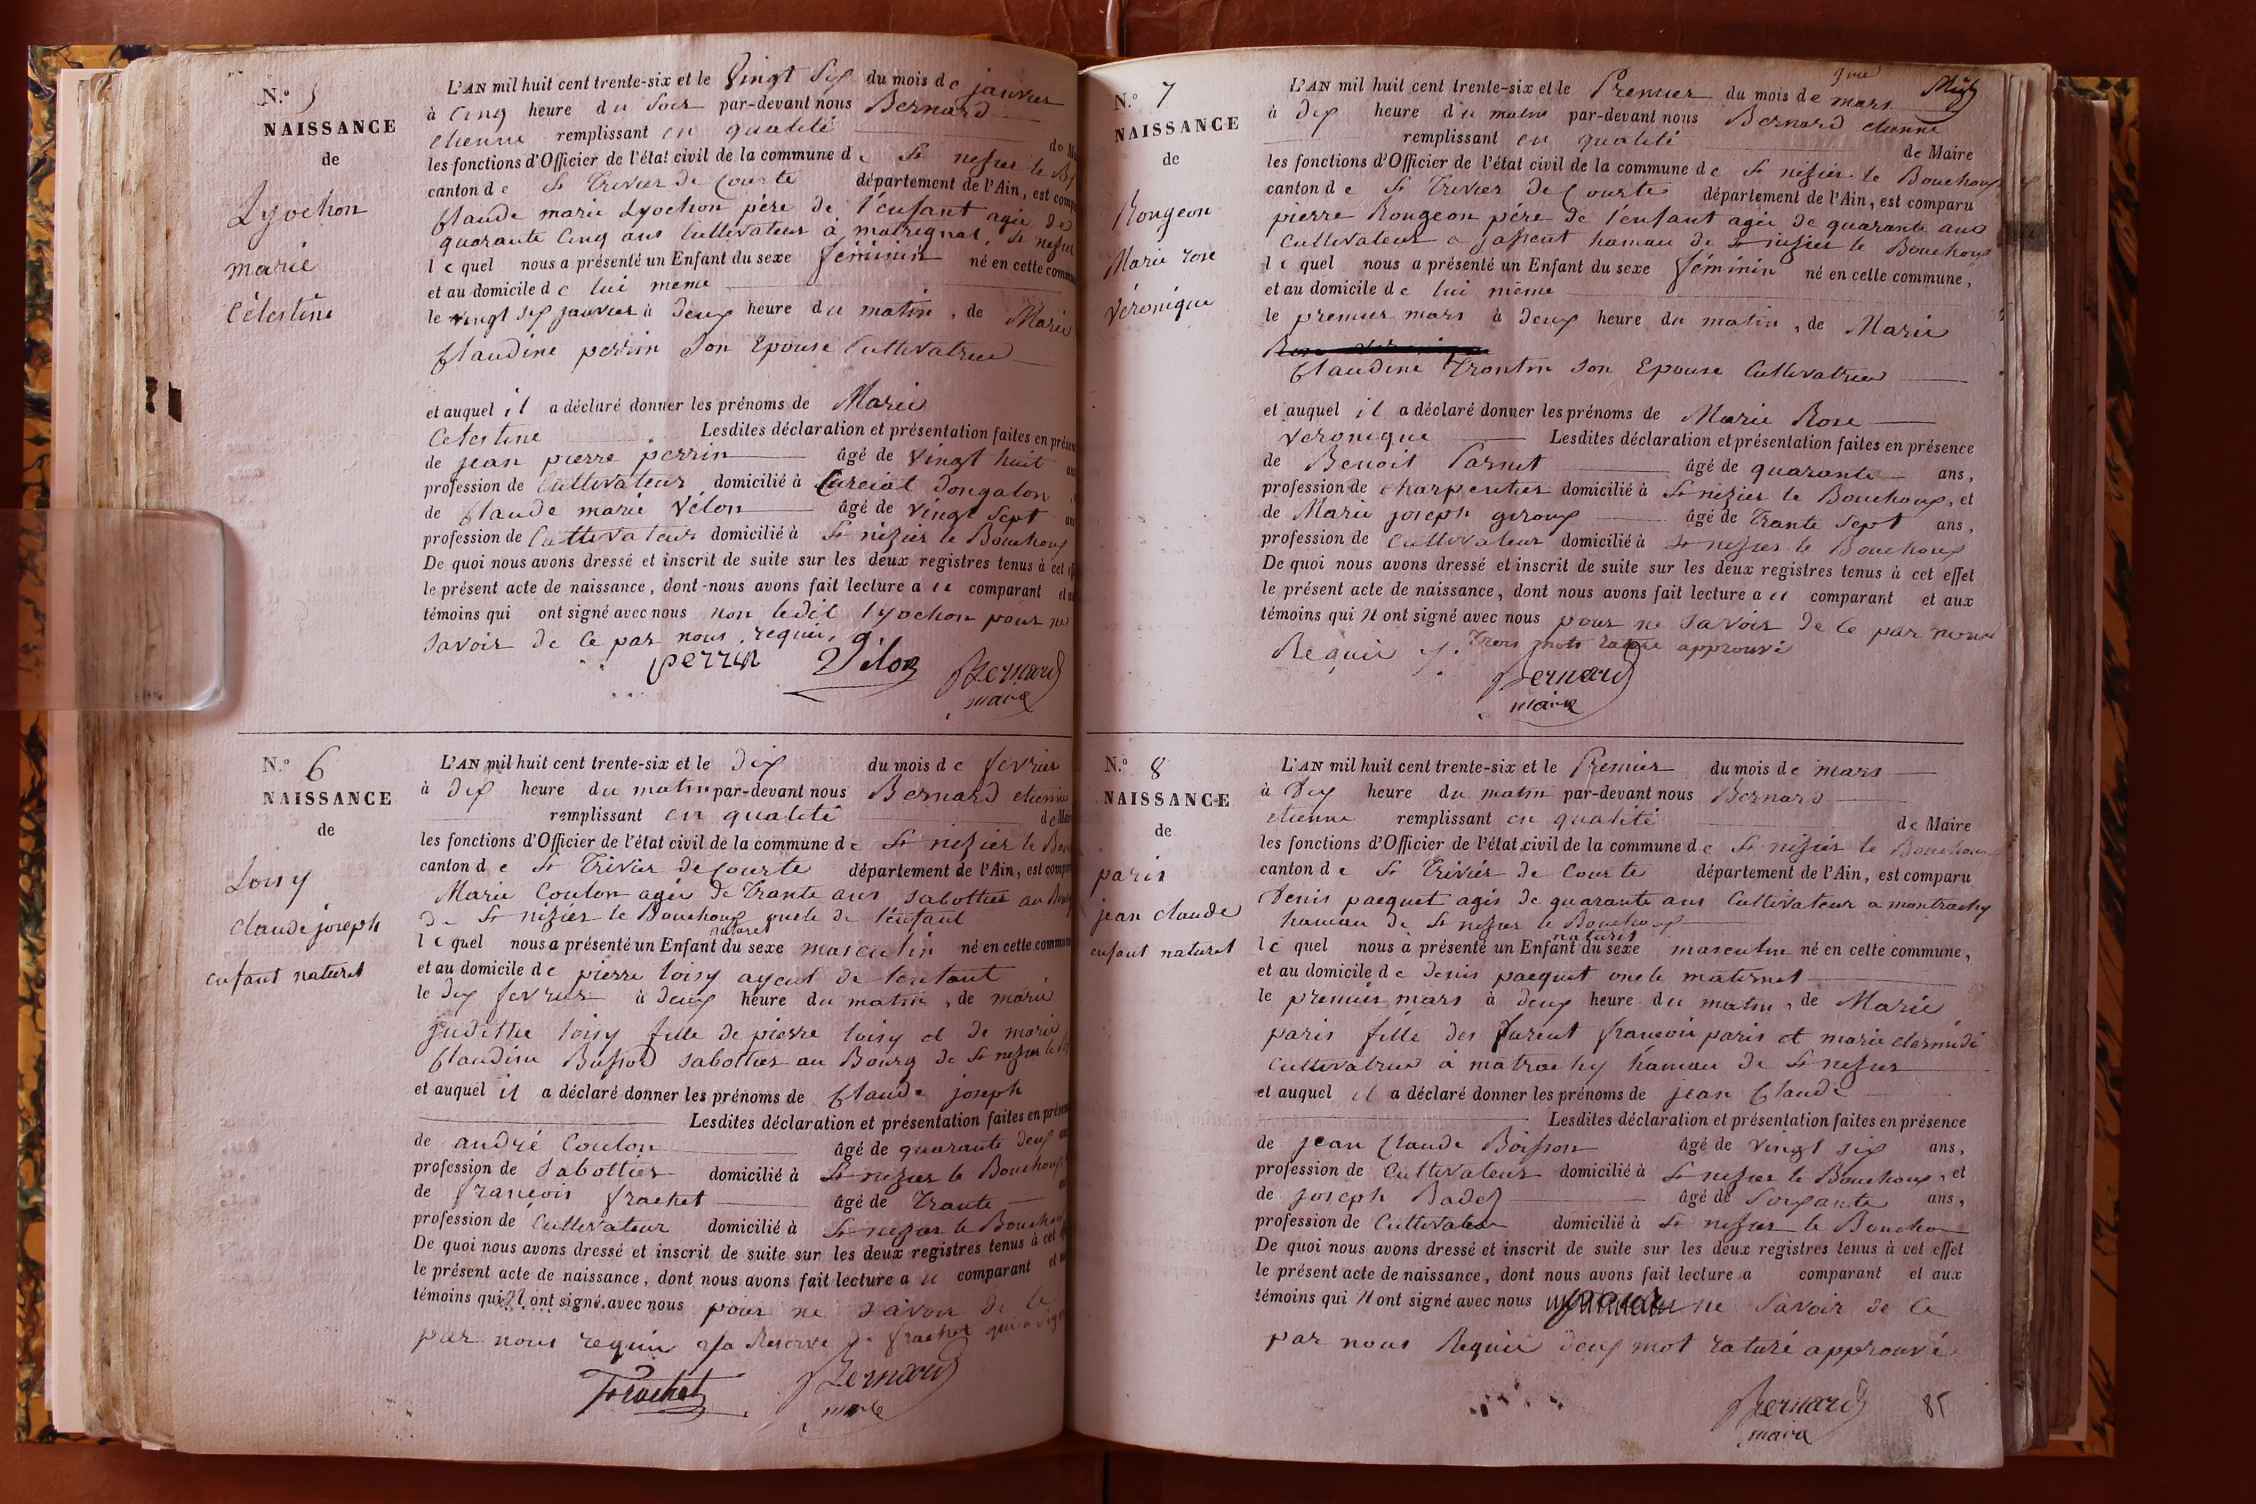 N.º 5
NAISSANCE
de
Lyochon
marie
Célestine
L'AN mil huit cent trente-six et le vingt six du mois de janvier
à cinq heure du soir par-devant nous Bernard
etienne remplissant en qualité de
les fonctions d'Officier de l'état civil de la commune de St nizier le
canton de St Trivier de Courte département de l'Ain, est
Claude marie Lyochon père de l'enfant agée de
quarante cinq ans Cultivateur à St nizier
lequel nous a présenté un Enfant du sexe féminin né en cette
et au domicile de lui meme
le vingt six janvier à deux heure du matin, de Marie
Claudine perrin son Epouse Cultivatrice
et auquel il a déclaré donner les prénoms de Marie
Celestine Lesdites déclaration et présentation faites en
de jean pierre perrin âgé de vingt huit
profession de Cultivateur domicilié à Curciat dongalon
de Claude marie Vélon âgé de vingt sept
profession de Cultivateur domicilié à St nizier le Bouchoux
De quoi nous avons dressé et inscrit de suite sur les deux registres tenus à cet
le présent acte de naissance, dont nous avons fait lecture a u comparant
témoins qui ont signé avec nous non ledit lyochon pour ne
savoir de ce par nous requis
perrin Vélon Bernard
maire
N.º 6
NAISSANCE
de
Loisy
claude joseph
enfant naturel
L'AN mil huit cent trente-six et le dix du mois de fevrier
à dix heure du matin par-devant nous Bernard etienne
remplissant en qualité de
les fonctions d'Officier de l'état civil de la commune de St nizier le
canton de St Trivier de courte département de l'Ain, est
Marie Coulon agée de trante ans sabottier au
de St nizier le Bouchoux de l'enfant
naturel
lequel nous a présenté un Enfant du sexe masculin né en cette
et au domicile de pierre loisy ayeul de l'enfant
le dix fevrier à deux heure du matin, de marie
judithe loisy fille de pierre loisy et de marie
Claudine sabottier au Bourg de St nizier
et auquel il a déclaré donner les prénoms de Claude joseph
Lesdites déclaration et présentation faites en
de andré Coulon âgé de quarante deux
profession de sabottier domicilié à St nizier le Bouchoux
de françois frachet âgé de trante
profession de Cultivateur domicilié à St nizier le Bouchoux
De quoi nous avons dressé et inscrit de suite sur les deux registres tenus à cet
le présent acte de naissance, dont nous avons fait lecture a u comparant
témoins qui n ont signé avec nous pour ne savoir de ce
par nous requis a la Reserve de frachet qui a signé
frachet Bernard
maire
N.º 7
NAISSANCE
de
Rongeon
Marie rose
véronique
L'AN mil huit cent trente-six et le Premier du mois de mars
à dix heure du matin par-devant nous Bernard etienne
remplissant en qualité de Maire
les fonctions d'Officier de l'état civil de la commune de St nizier le Bouchoux
canton de St Trivier de Courte département de l'Ain, est comparu
pierre Rongeon père de l'enfant agée de quarante ans
Cultivateur a hamau de St nizier le Bouchoux
lequel nous a présenté un Enfant du sexe féminin né en cette commune,
et au domicile de lui même
le premier mars à deux heure du matin, de Marie
Claudine Trontin son Epouse Cultivatrice
et auquel il a déclaré donner les prénoms de Marie Rose
Veronique Lesdites déclaration et présentation faites en présence
de Benoit âgé de quarante ans,
profession de charpentier domicilié à St nizier le Bouchoux, et
de Marie joseph giroux âgé de trante sept ans,
profession de cultivateur domicilié à St nizier le Bouchoux
De quoi nous avons dressé et inscrit de suite sur les deux registres tenus à cet effet
le présent acte de naissance, dont nous avons fait lecture a u comparant et aux
témoins qui n ont signé avec nous pour ne savoir de ce par nous
Requis trois mots raturé approuvé
Bernard
maire
N.º 8
NAISSANCE
de
paris
jean claude
enfant naturel
L'AN mil huit cent trente-six et le Premier du mois de mars
à dix heure du matin par-devant nous Bernard
etienne remplissant en qualité de Maire
les fonctions d'Officier de l'état civil de la commune de St nizier le Bouchoux
canton de St Trivier de Courte département de l'Ain, est comparu
Denis pacquet agés de quarante ans Cultivateur a montrachy
hamau de St nizier le Bouchoux
naturel
le quel nous a présenté un Enfant du sexe masculin né en cette commune,
et au domicile de denis pacquet oncle maternel
le premier mars à deux heure du matin, de Marie
paris fille des furent françois paris et marie
Cultivatrice à matrachy hamau de St nizier
et auquel il a déclaré donner les prénoms de jean Claude
Lesdites déclaration et présentation faites en présence
de jean Claude Boisson âgé de vingt six ans,
profession de Cultivateur domicilié à St nizier le Bouchoux, et
de joseph Badez âgé de soixante ans,
profession de Cultivateur domicilié à St nizier le Bouchoux
De quoi nous avons dressé et inscrit de suite sur les deux registres tenus à cet effet
le présent acte de naissance, dont nous avons fait lecture a comparant et aux
témoins qui n ont signé avec nous pour ne savoir de ce
par nous Requis deux mot raturé approuvé
Bernard
maire
85